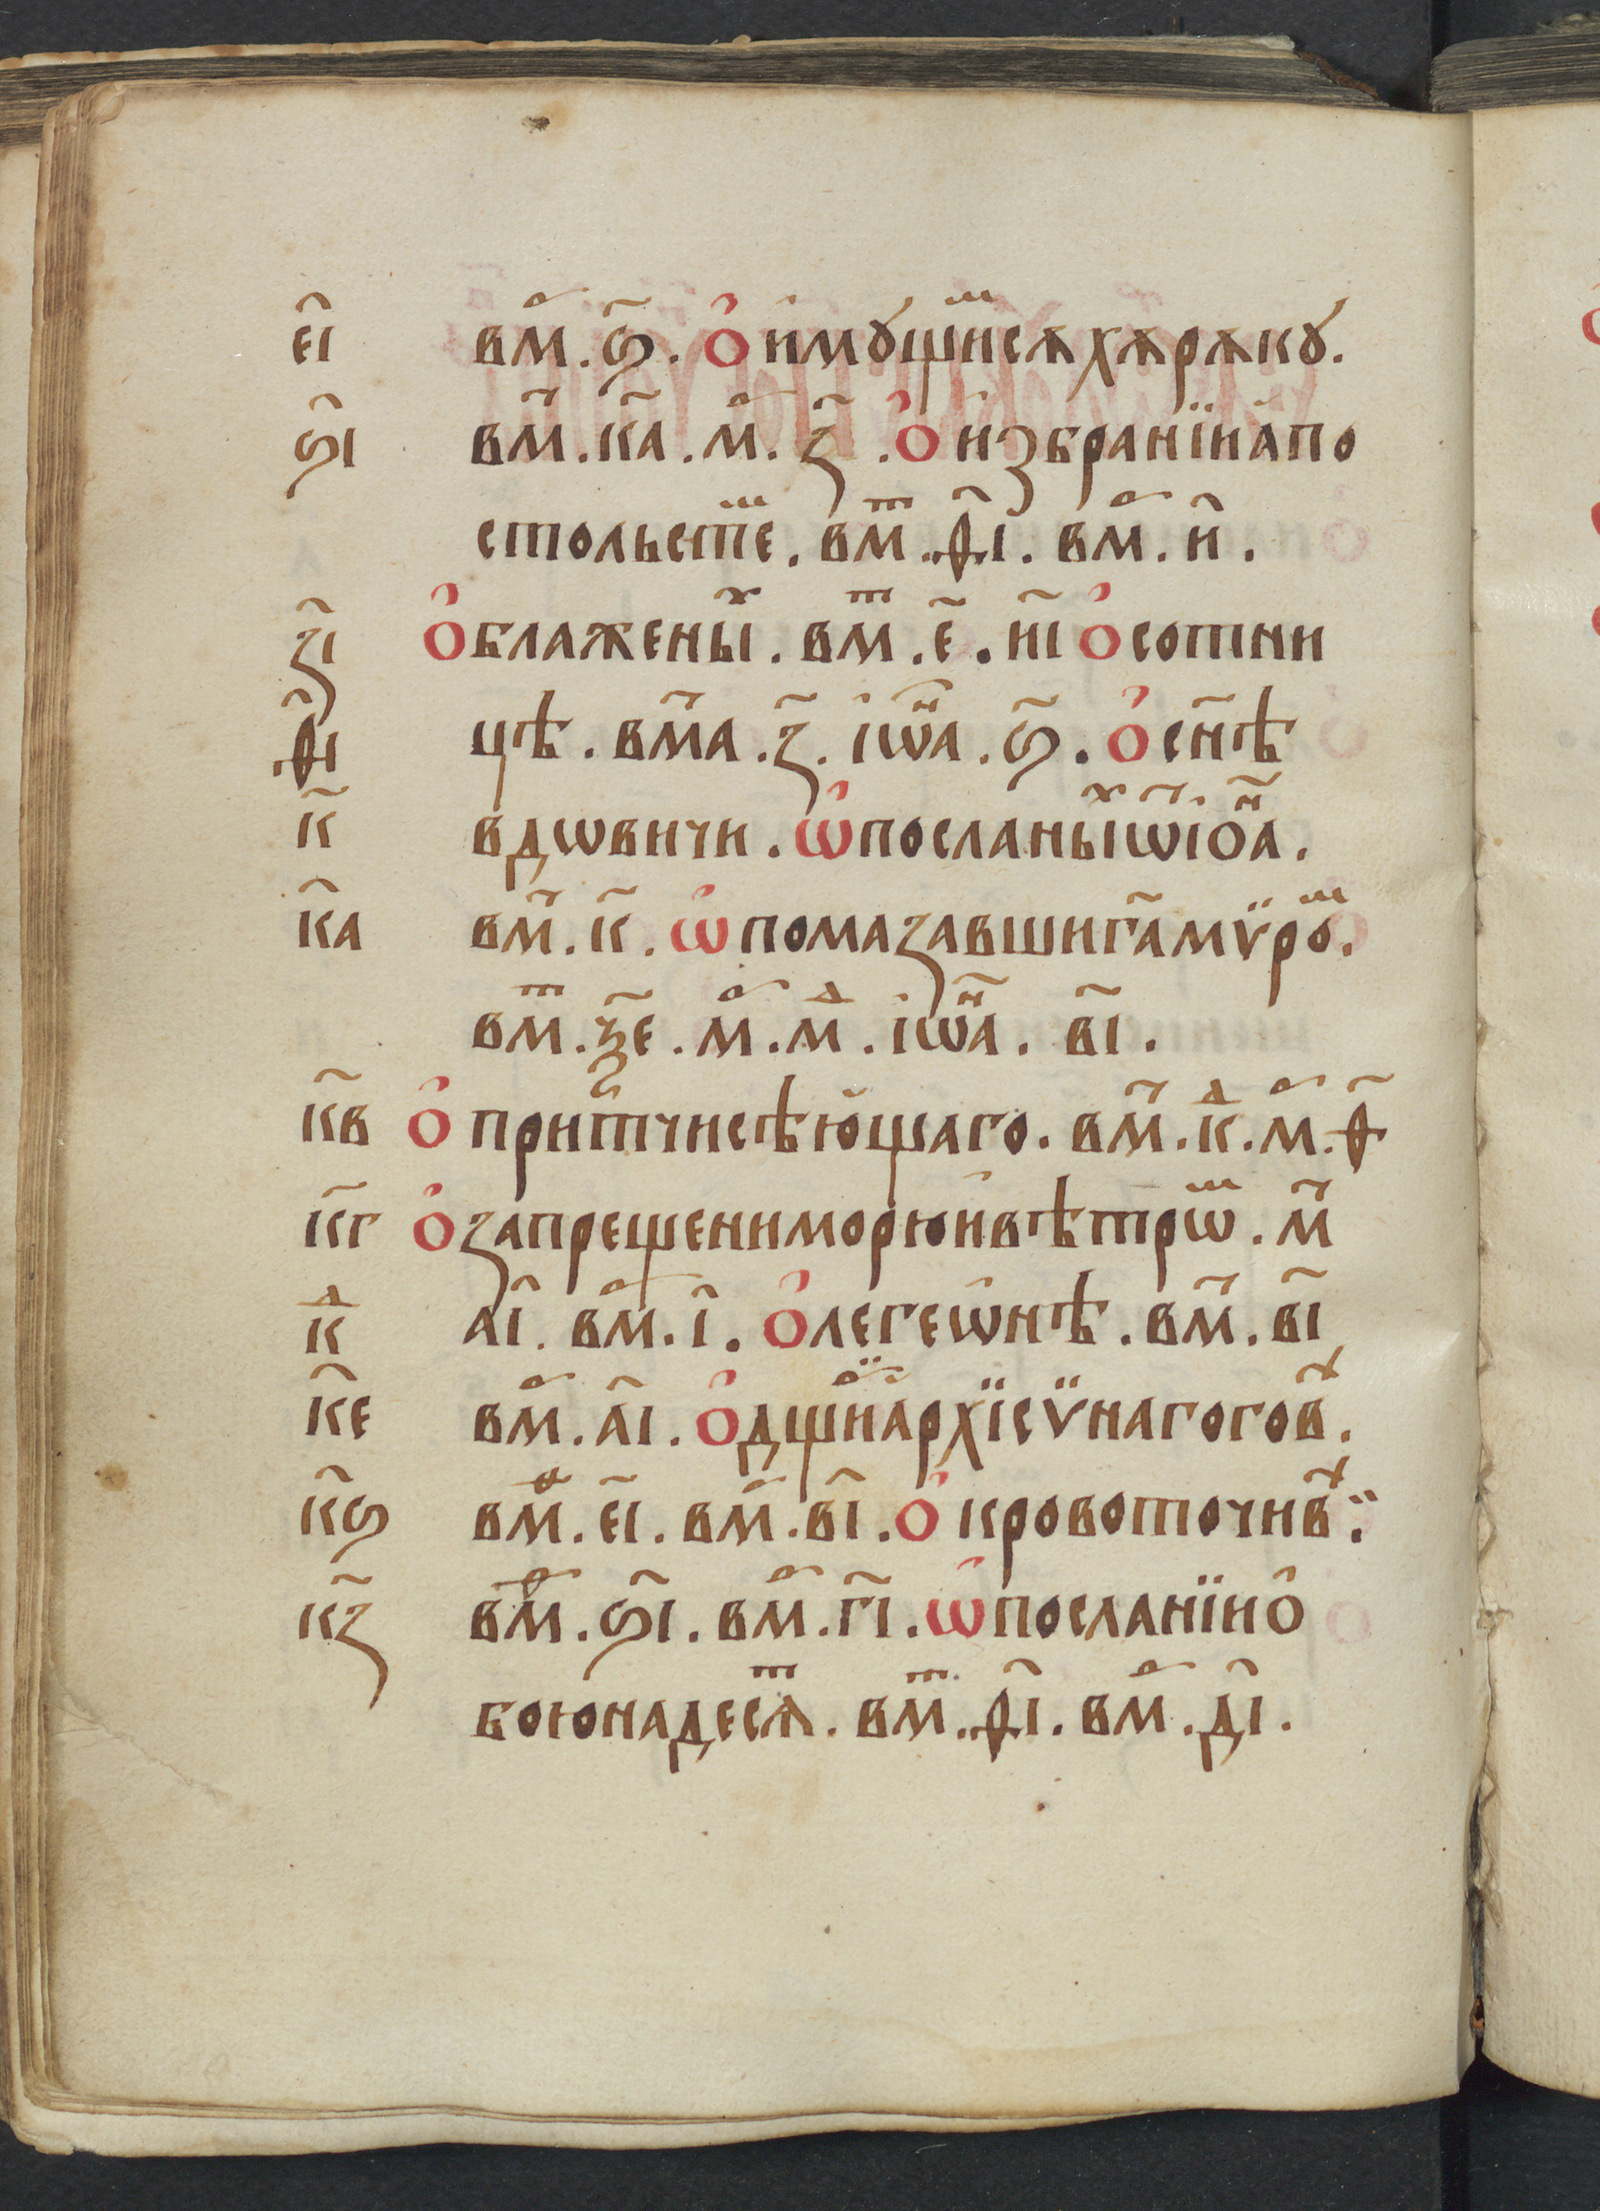 е҃і вⷨ҇. ѕ҃. О҆ и҆мꙋщⷨиⷨсѧхѧрѧкꙋ.
ѕ҃і в҃м. к҃а. м҃. з҃. О҆ и҆ збранїи а҆по
стольстⷨе. вⷨм. ѳ҃і. в҃м. и҃.
з҃і О҆ блаженыⷯ. вⷨм. е҃. и҃і О҆ сотни
ѳ҃і цѣ. в҃ма. з҃. і҆ѡⷩ҇а. ѕ҃. О҆ сн҃ѣ
к҃ вдѡвичи. Ѡ҆ посланыⷯ ѿ і҆оⷩ҇а.
к҃а в҃м. к҃. Ѡ҆ помазавши г҃а мѵ̈роⷨ.
вⷨм. ѯ҃е. м҃. мⷣ. і҆ѡⷩ҇а. в҃і.
к҃в О҆ притⷱчи сѣю҆щаго. в҃м. кⷣ. м҃. ѳ҃
к҃г О҆ запрещени морю и҆ вѣтрѡⷨ. м҃
кⷣ а҃і. в҃м. і҃. О҆ легеѡ҆нѣ. в҃м. в҃і
к҃е в҃м. а҃і. О҆ дщⷺи а҆рхїсѵ̈нагоговⷤ.
к҃ѕ в҃м. е҃і. в҃м. в҃і. О҆ кровоточивⷤ.
к҃з в҃м. ѕ҃і. в҃м. г҃і. Ѡ҆ посланїи о҆
боюнадесѧⷮ. вⷨм. ѳ҃і. в҃м. д҃і.